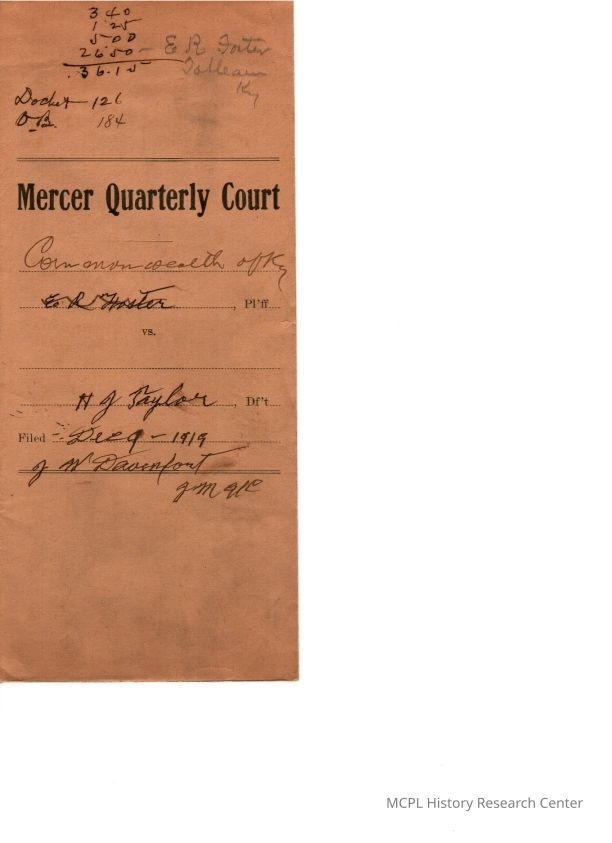 3 40
1 25
5 00
26 50 - E R Foster
36.15
Ky
Docket - 126
O.B. 184
Mercer Quarterly Court
Commonwealth of Ky
E R Foster, Pl'ff
vs.
H J Taylor, Df't
Filed - Dec 9 - 1919
J W Davenport
MCPL History Research Center